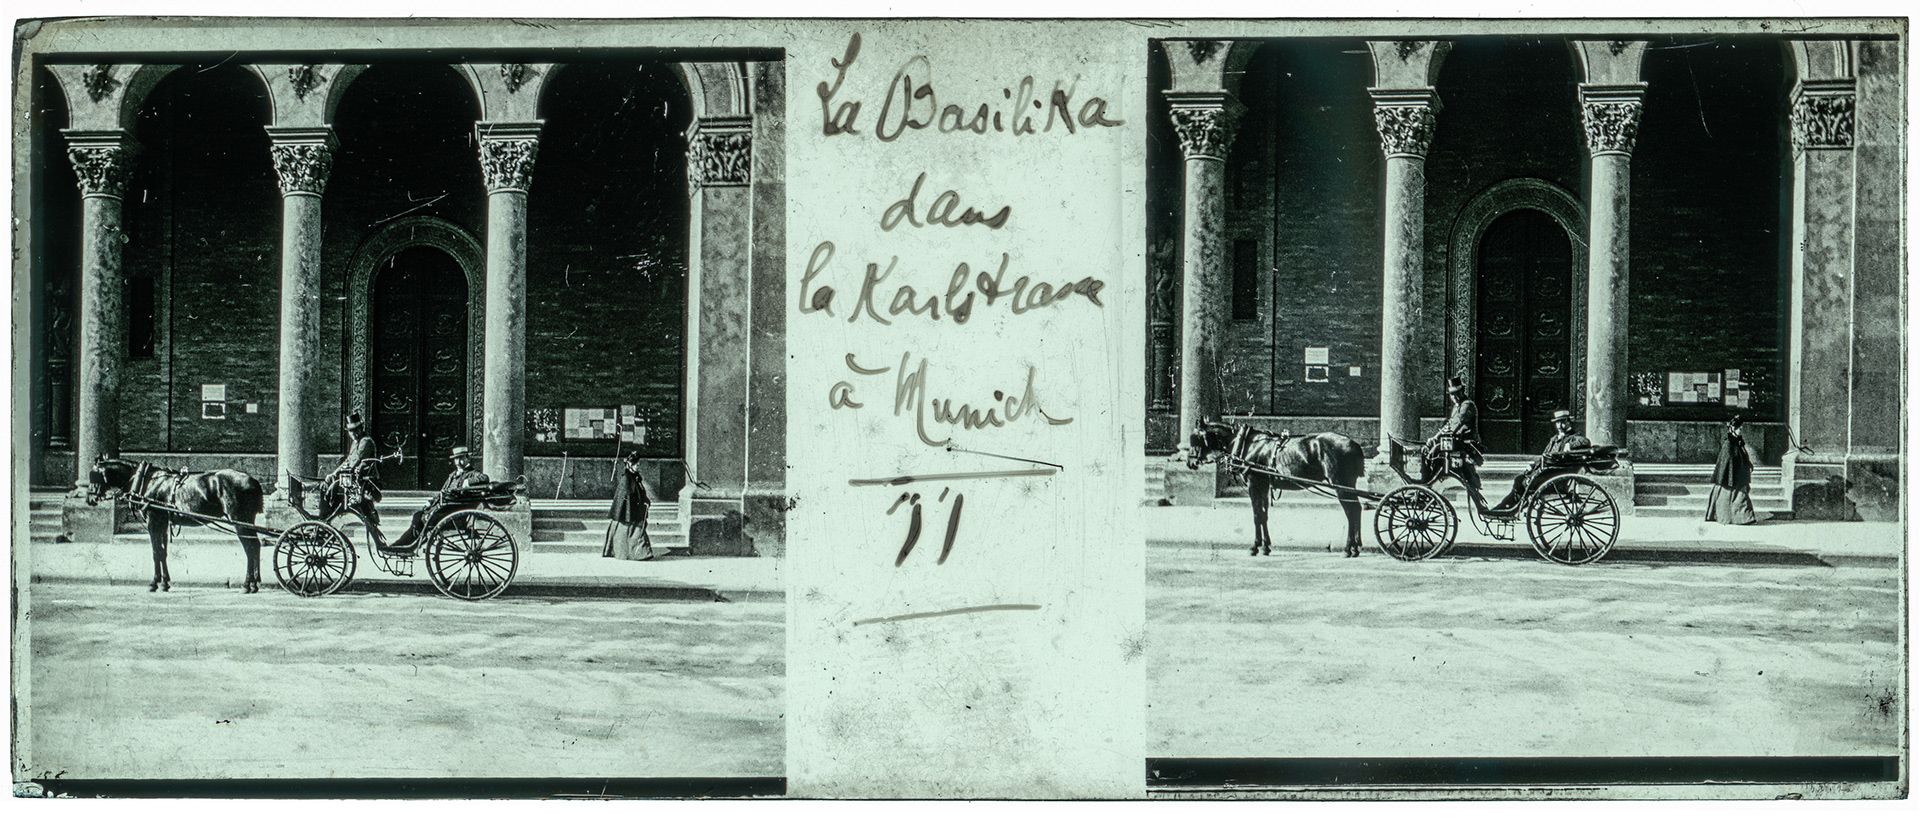 La Basilika
dans
la Karlstrasse
à Munich